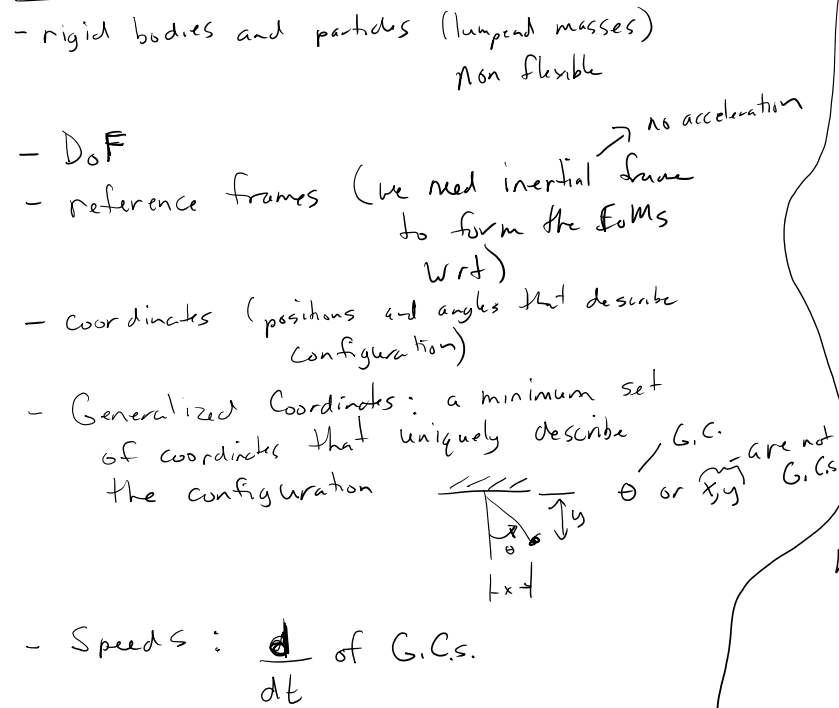 - rigid bodies and particles (lumpead masses)
non flexible
no acceleration
- DoF
- reference frames (we need inertial frame
to form the EoMs
wrt)
- coordinates (positions and angles that describe
configuration)
- Generalized Coordinates: a minimum set
of coordinates that uniquely describe
the configuration
G.C.
θ or x,y are not
G.C.s
y
θ
x
- Speeds: d/dt of G.C.s.